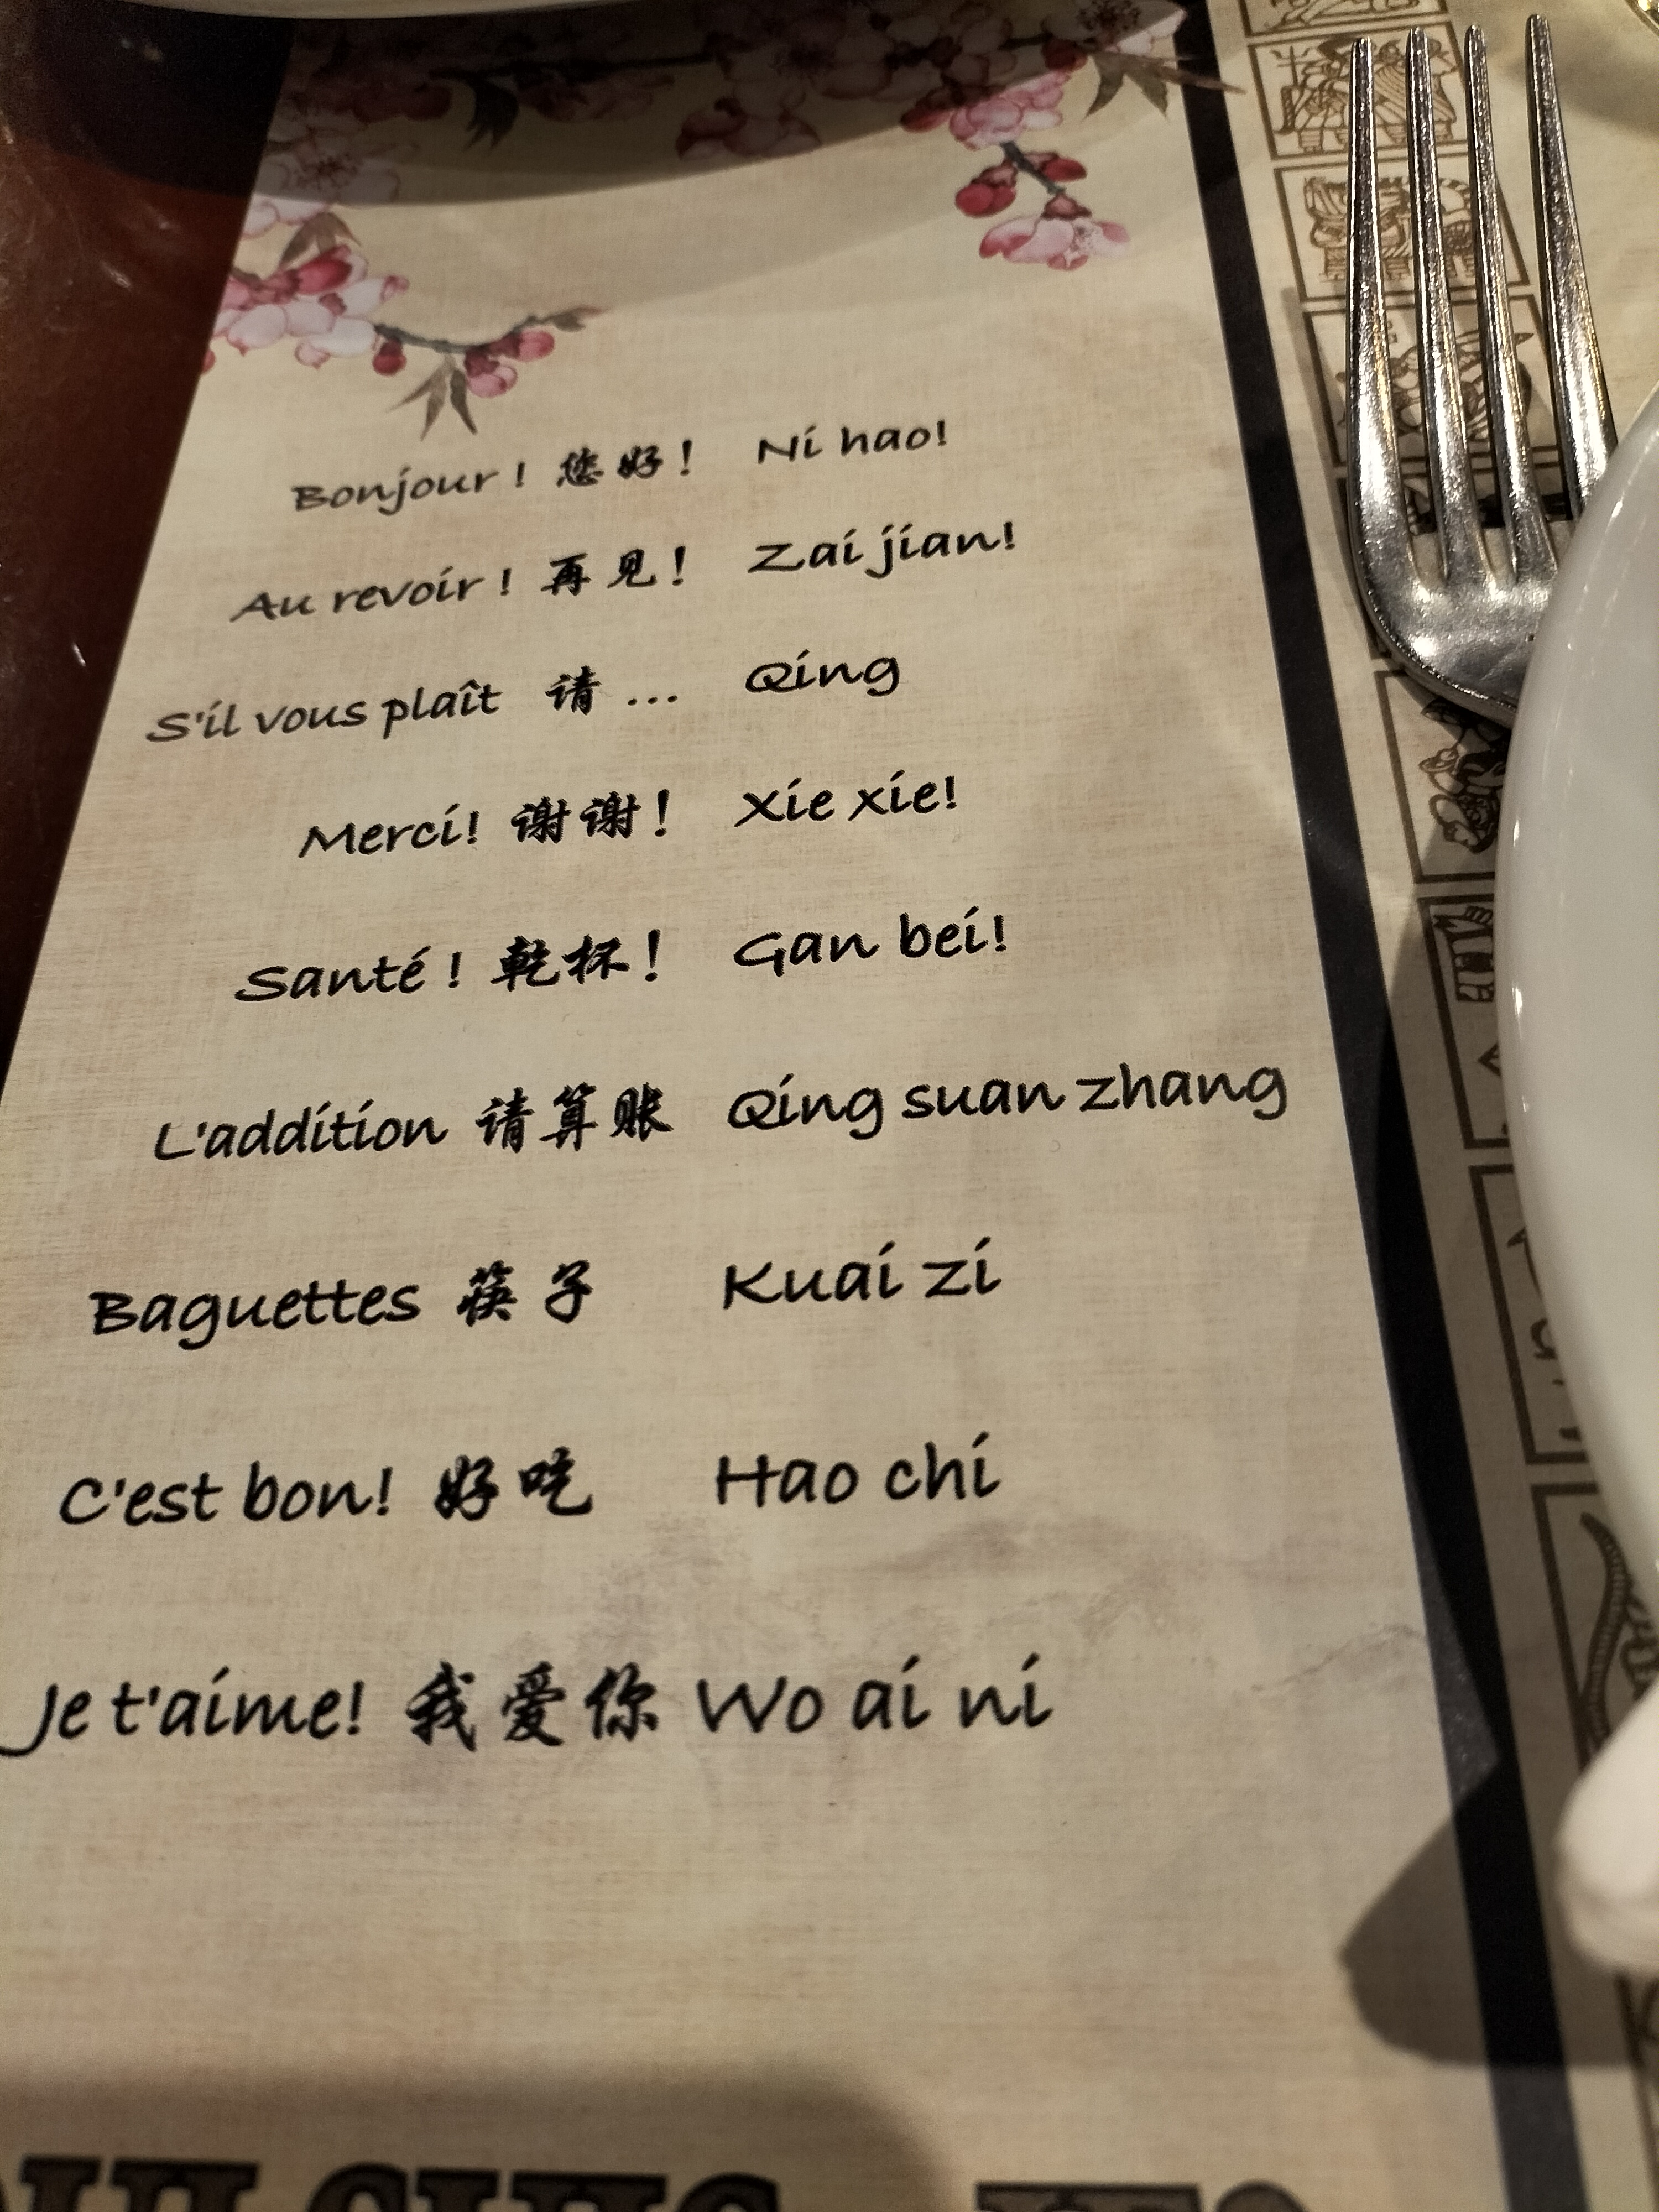 Bonjour ! 您好! Ni hao!
Au revoir ! 再见! Zai jian!
S'il vous plaît 请 ... Qing
Merci! 谢谢! Xie xie!
Santé ! 乾杯! Gan bei!
L'addition 请算账 Qing suan zhang
Baguettes 筷子 Kuai zi
C'est bon! 好吃 Hao chi
Je t'aime! 我爱你 Wo ai ni